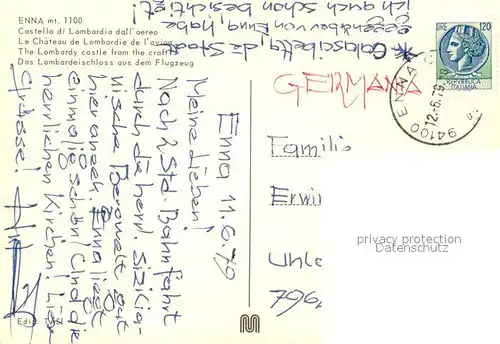 ENNA mt. 1100
Castello di Lombardia dall'aereo
Le Château de Lombardie de l'avion
The Lombardy castle from the craft
Das Lombardeischloss aus dem Flugzeug
* Calascibetta, die Stadt
gegenüber von Enna, habe
ich auch schon besichtigt!
Enna 11.6.79
Meine Lieben!
Nach 2 Std. Bahnfahrt
durch die herrl. sizilia-
nische Bergwelt gut
hier angek. Enna liegt
einmalig schön! Und die
herrlichen Kirchen! Liebe
Grüsse!
GERMANIA
Familie
Erwin
Uhle
796
120
REPVBBLICA
ITALIANA
94100 ENNA A
12.-6.79
privacy protection
Oldthing
Ediz.
M